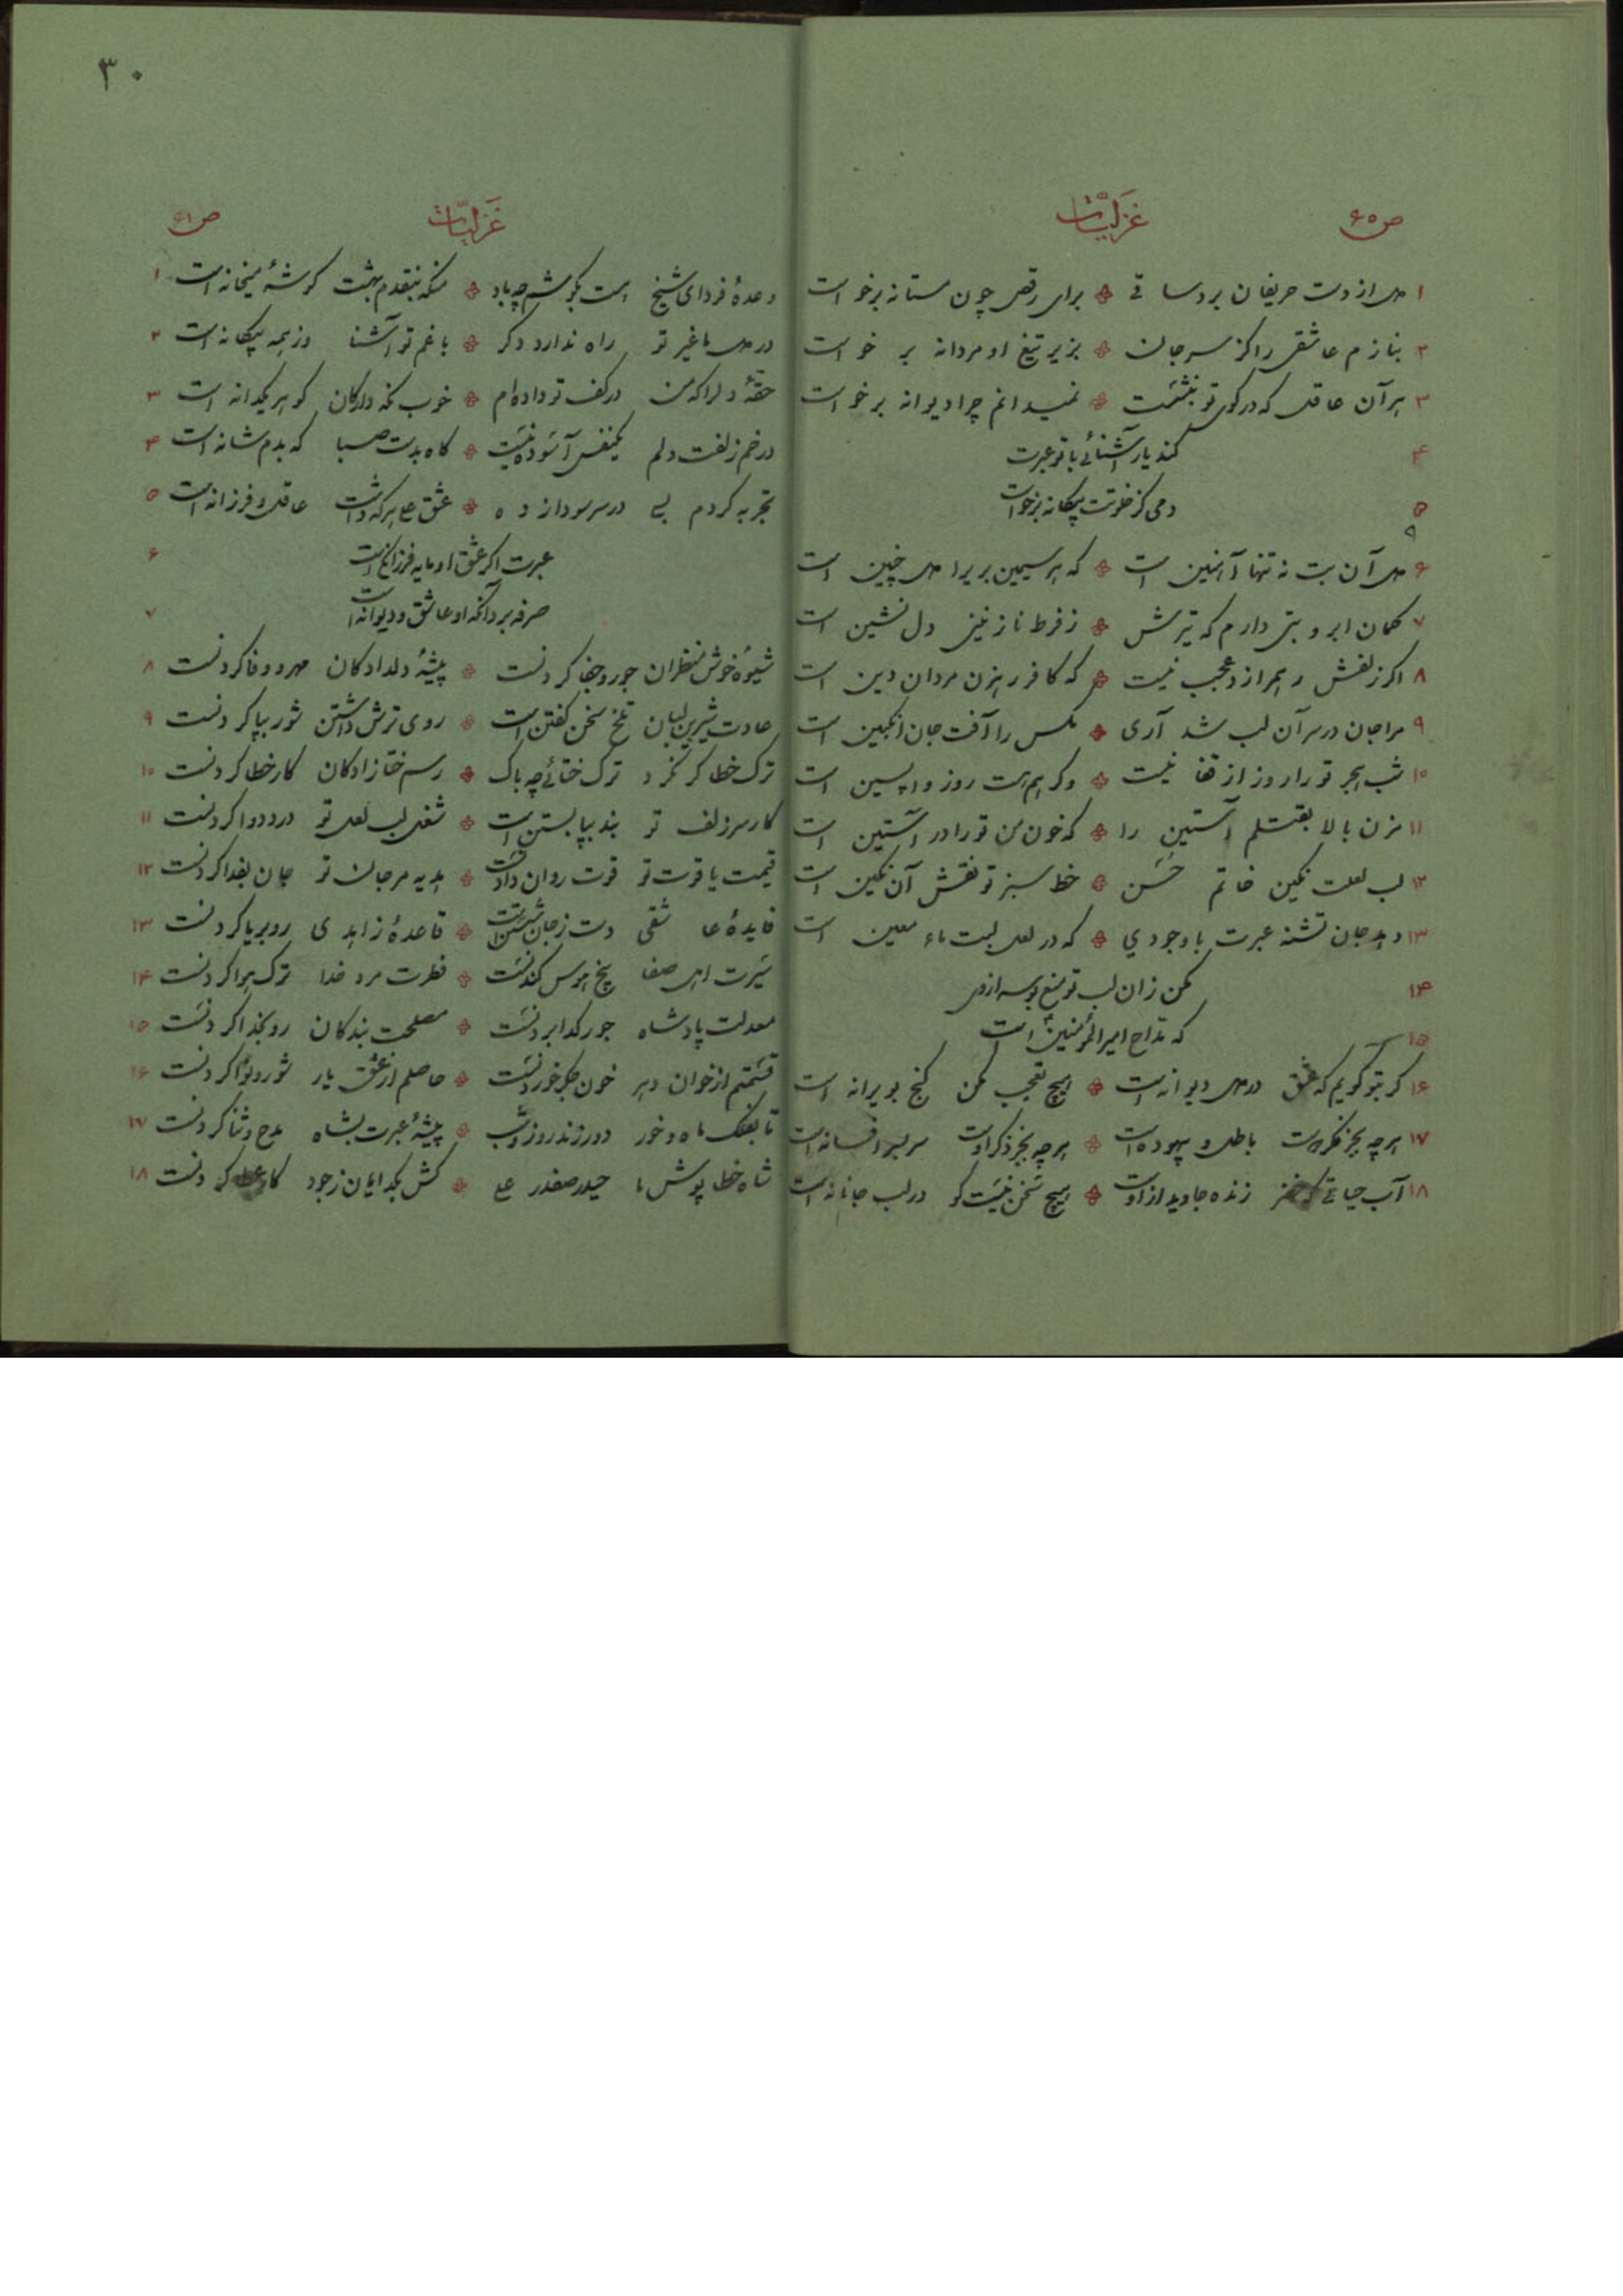 ص۶۰ غزلیّات
۱ دل از دست حریفان برد ساقی برای رقص چون مستانه برخواست
۲ بنازم عاشقی را کز سر جان بزیر تیغ او مردانه برخواست
۳ هر آن عاقل که در کوی تو بنشست نمیدانم چرا دیوانه برخواست
۴ کند یار آشنائی با تو عبرت
۵ دمی کز خلوتت بیکانه برخواست
۶ دل آن بت نه تنها آهنین است که هر سیمین بریرا دل چنین است
۷ کمان ابرو بتی دارم که تیرش ز فرط ناز نیز دل نشین است
۸ اکر زلفش رهم زد عجب نیست که کافر رهزن مردان دین است
۹ مرا جان در سر آن لب شد آری مکس را آفت جان انکبین است
۱۰ شب هجر تو را روز از قفا نیست وکر هم هست روز واپسین است
۱۱ مزن بالا بقتلم آستین را که خون من تو را در آستین است
۱۲ لب لعلت نکین خاتم حسن خط سبز تو نقش آن نکین است
۱۳ دهد جان تشنه عبرت با وجودی که در لعل لبت ماء معین است
۱۴ مکن زان لب تو منع بوسه از وی
۱۵ که مداح امیرالمؤمنین است
۱۶ کر بتو کویم که عشق در دل دیوانه است هیچ تعجب مکن کنج بویرانه است
۱۷ هر چه بجز فکر اوست باطل و بیهوده است هر چه بجز ذکر اوست سربسر افسانه است
۱۸ آب حیاتی که خضر زنده جاوید از اوست هیچ سخن نیست کو در لب جانانه است
۳۰
غزلیّات ص۶۱
وعدهٔ فردای شیخ است بکوشم چه باد منکه بنقدم بهشت کوشهٔ میخانه است ۱
در دل ما غیر تو راه ندارد دکر با غم تو آشنا وز همه بیکانه است ۲
حقهٔ دلرا که من در کف تو داده‌ام خوب نکه دار کان کوهر یکدانه است ۳
در خم زلفت دلم یکنفس آسوده نیست کاه بدست صبا که بدم شانه است ۴
تجربه کردم بسی در سر سودا زده عشق علی هر که داشت عاقل و فرزانه است ۵
عبرت اکر عشق او مایه فرزانکی است ۶
صرفه برد آنکه او عاشق و دیوانه است ۷
شیوهٔ خوش منظران جور و جفا کردنست پیشهٔ دلدادکان مهر و وفا کردنست ۸
عادت شیرین لبان تلخ سخن کفتن است روی ترش داشتن شور بپا کردنست ۹
ترک خطا کر نکرد ترک ختائی چه باک رسم ختا زادکان کار خطا کردنست ۱۰
کار سر زلف تو بند بپا بستن است شغل لب لعل تو درد دوا کردنست ۱۱
قیمت یاقوت تو قوت روان دادنست هدیه مرجان تو جان بفدا کردنست ۱۲
فایدهٔ عاشقی دست ز جان شستن است قاعدهٔ زاهدی رو بریا کردنست ۱۳
سیرت اهل صفا بیخ هوس کندنست فطرت مرد خدا ترک هوا کردنست ۱۴
معدلت پادشاه جور کدا بردنست مصلحت بندکان رو بخدا کردنست ۱۵
قسمتم از خوان دهر خون جکر خوردنست حاصلم از عشق یار شور و نوا کردنست ۱۶
تا بفلک ماه و خور دور زند روز و شب پیشهٔ عبرت بشاه مدح و ثنا کردنست ۱۷
شاه خطا پوش ما حیدر صفدر علی کش بکدایان ز جود کار عطا کردنست ۱۸